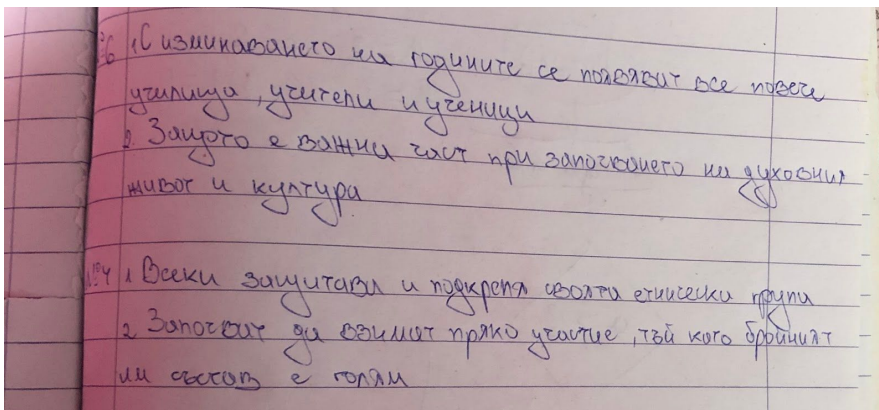 №6 1. С изминаването на годините се появяват все повече
училища, учители и ученици
2. Защото е важна част при започването на духовния
живот и култура
№4 1 Всеки защитава и подкрепя своята етническа група
2 Започват да взимат пряко участие, тъй като бройният
им състав е голям